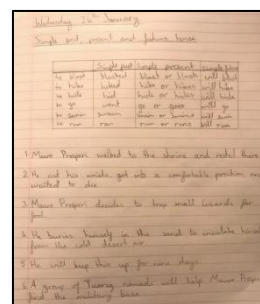 Wednesday 26th January
Simple past, present and future tense
Simple past Simple present Simple future
to blast blasted blast or blasts will blast
to hike hiked hike or hikes will hike
to hide hid hide or hides will hide
to go went go or goes will go
to swim swam swim or swims will swim
to run ran run or runs will run
1. Mauro Prosperi walked to the shrine and rested there.
2. He cut his wrists, got into a comfortable position and
waited to die.
3. Mauro Prosperi decides to trap small lizards for
food.
4. He buries himself in the sand to insulate himself
from the cold desert air.
5. He will keep this up for nine days.
6. A group of Tuareg nomads will help Mauro Prosperi
find the military base.